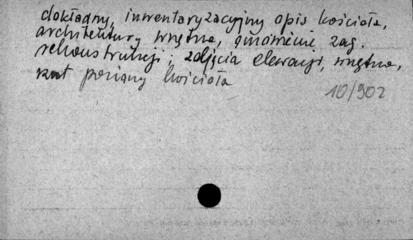 dokładny, inwentaryzacyjny opis kościoła,
architektury wnętrza, omówienie zag.
rekonstrukcji; zdjęcia elewacji, wnętrza,
rzut poziomy kościoła
10/902